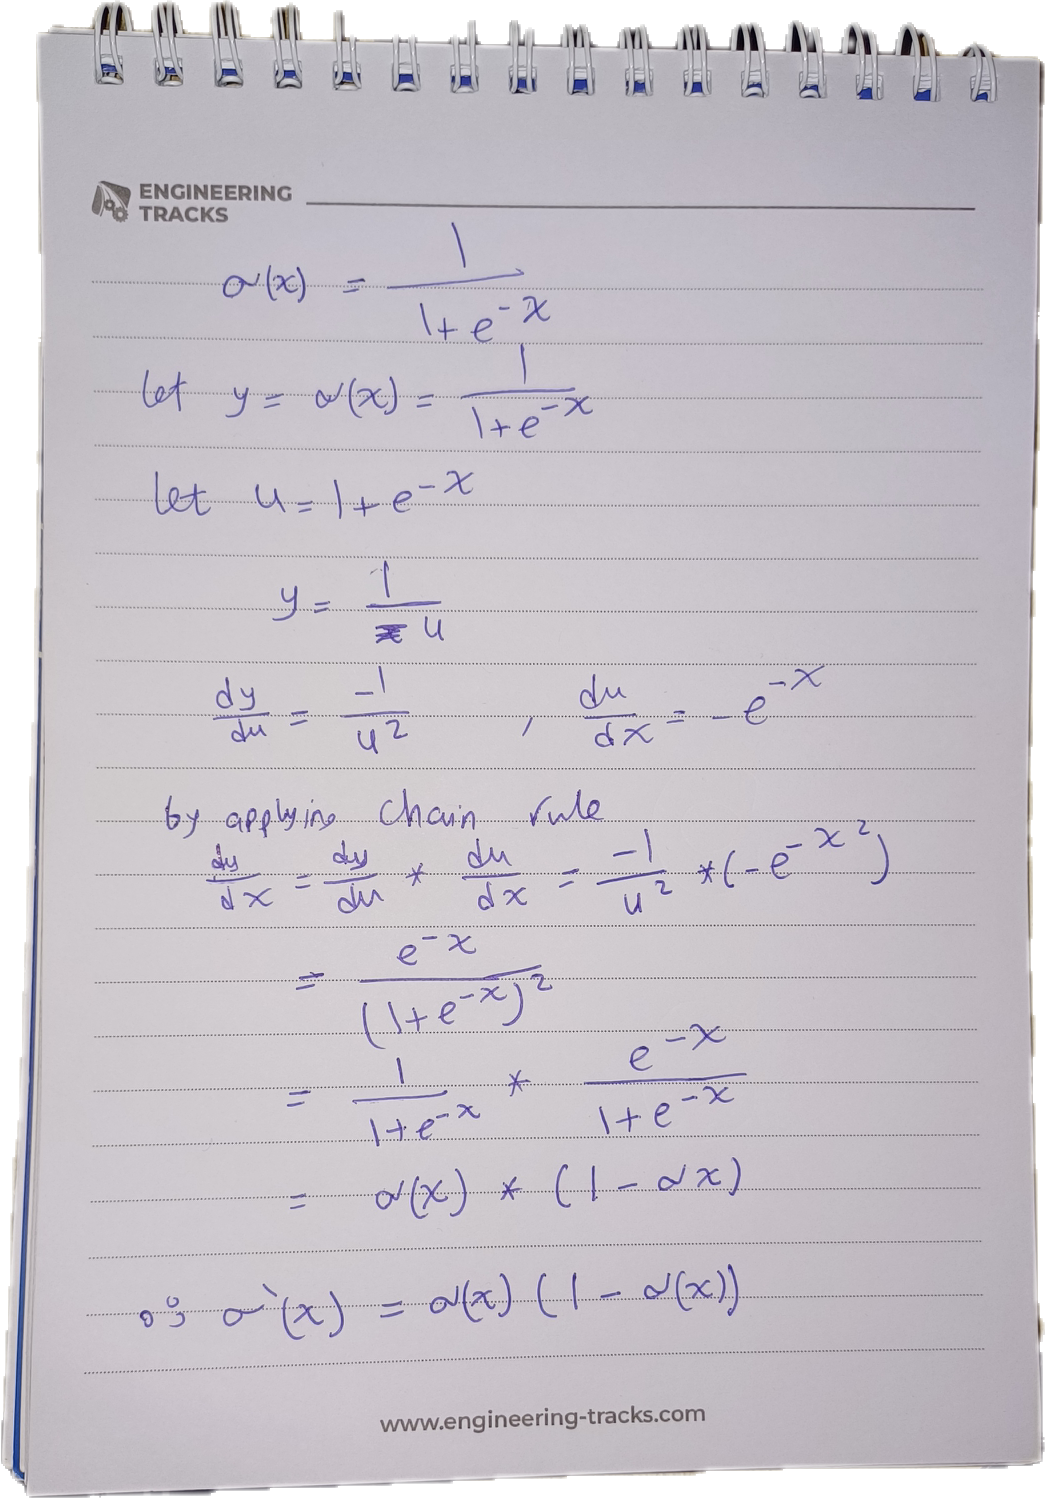 ENGINEERING
TRACKS
σ(x) = 1 / (1 + e^-x)
let y = σ(x) = 1 / (1 + e^-x)
let u = 1 + e^-x
y = 1 / u
dy/du = -1 / u^2 , du/dx = -e^-x
by applying chain rule
dy/dx = dy/du * du/dx = -1 / u^2 * (-e^-x^2)
= e^-x / (1 + e^-x)^2
= 1 / (1 + e^-x) * e^-x / (1 + e^-x)
= σ(x) * (1 - σx)
∴ σ`(x) = σ(x) (1 - σ(x))
www.engineering-tracks.com